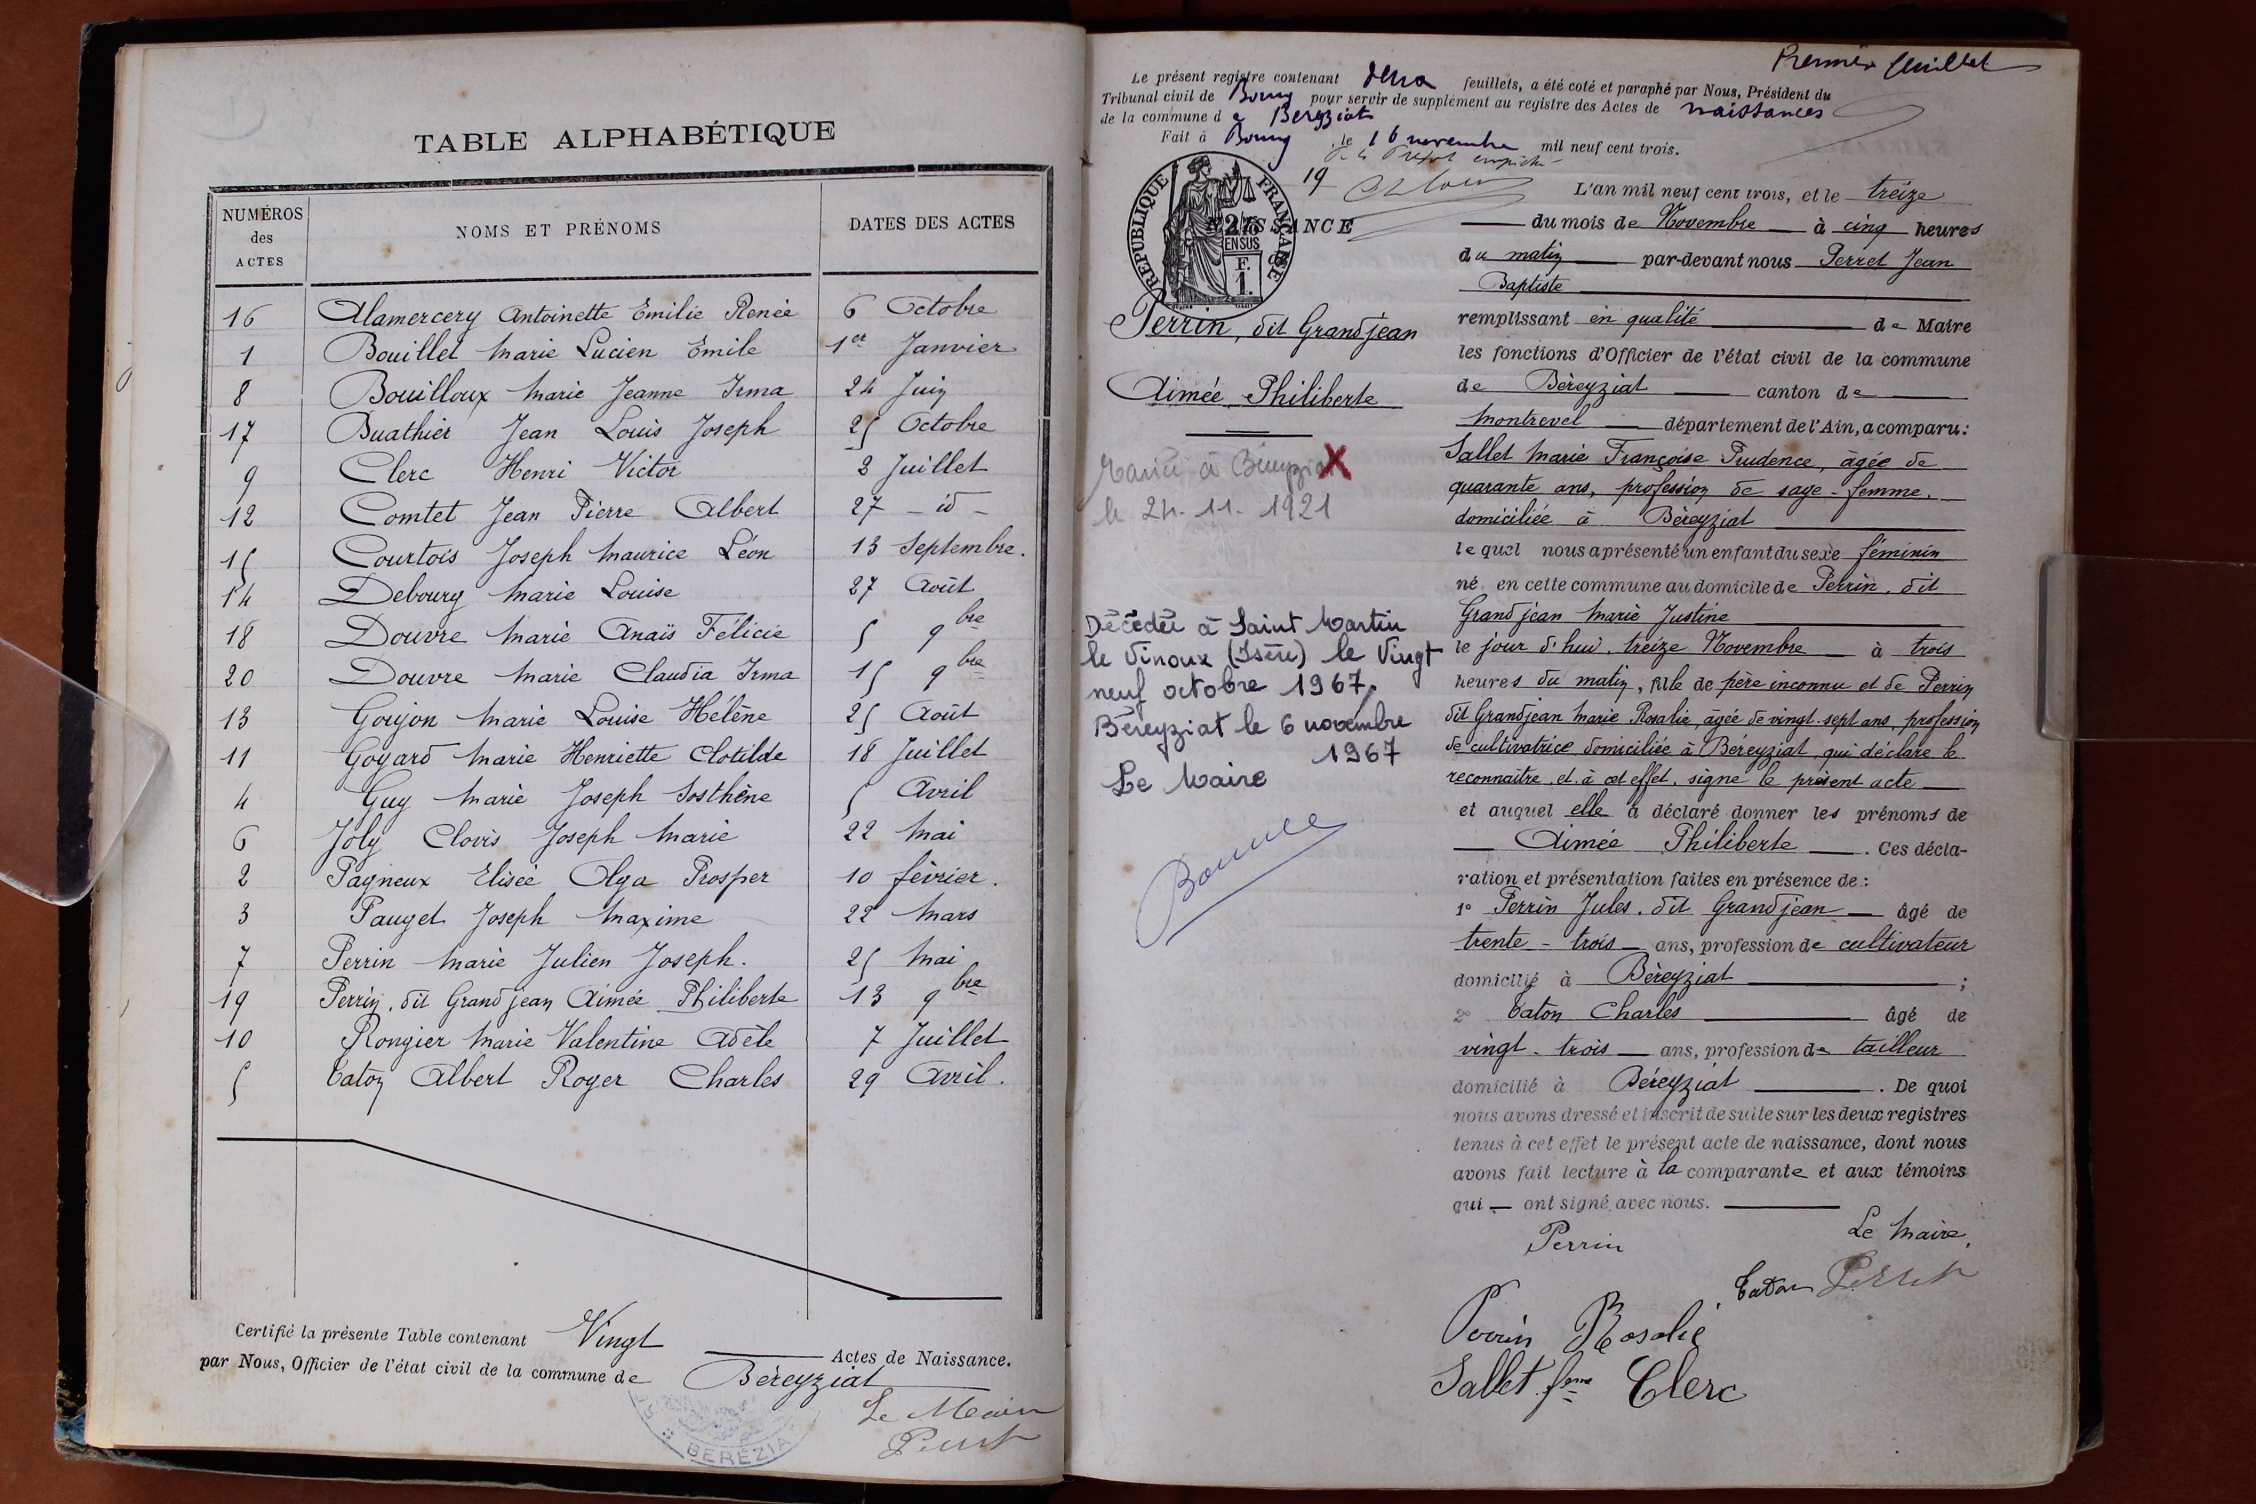 TABLE ALPHABÉTIQUE
NUMÉROS des ACTES
NOMS ET PRÉNOMS
DATES DES ACTES
16 Alamercery Antoinette Emilie Renée 6 Octobre
1 Bouillet Marie Lucien Emile 1er Janvier
8 Bouilloux Marie Jeanne Irma 24 Juin
17 Buathier Jean Louis Joseph 25 Octobre
9 Clerc Henri Victor 2 Juillet
12 Comtet Jean Pierre Albert 27 - id -
15 Courtois Joseph Maurice Léon 13 Septembre.
14 Debourg Marie Louise 27 Août
18 Douvre Marie Anaïs Félicie 5 9bre
20 Douvre Marie Claudia Irma 15 9bre
13 Goujon Marie Louise Hélène 25 Août
11 Goyard Marie Henriette Clotilde 18 Juillet
4 Guy Marie Joseph Sosthène 5 Avril
6 Joly Clovis Joseph Marie 22 Mai
2 Pagneux Elisée Olga Prosper 10 février.
3 Pauget Joseph Maxime 22 Mars
7 Perrin Marie Julien Joseph. 25 Mai
19 Perrin, dit Grandjean Aimée Philiberte 13 9bre
10 Rongier Marie Valentine Adèle 7 Juillet
5 Caton Albert Roger Charles 29 Avril.
Certifié la présente Table contenant Vingt
Actes de Naissance.
par Nous, Officier de l'état civil de la commune de Béreyziat
Le Maire
Perret
BEREZIA
Premier feuillet
Le présent registre contenant deux feuillets, a été coté et paraphé par Nous, Président du
Tribunal civil de Bourg pour servir de supplément au registre des Actes de naissances
de la commune de Bereyziat
Fait à Bourg, le 16 novembre mil neuf cent trois.
19
NAISSANCE
RÉPUBLIQUE FRANÇAISE
2/10 EN SUS
F. 1.
Perrin, dit Grandjean
Aimée Philiberte
Mariée à Béreyziat X
le 24. 11. 1921
Décédée à Saint Martin
le Vinoux (Isère) le Vingt
neuf octobre 1967.
Béreyziat le 6 novembre
1967
Le Maire
L'an mil neuf cent trois, et le treize
du mois de Novembre à cinq heures
du matin par-devant nous Perret Jean
Baptiste
remplissant en qualité de Maire
les fonctions d'Officier de l'état civil de la commune
de Béreyziat canton de
Montrevel département de l'Ain, a comparu:
Sallet Marie Françoise Prudence, âgée de
quarante ans, profession de sage-femme.
domiciliée à Béreyziat
lequel nous a présenté un enfant du sexe féminin
né en cette commune au domicile de Perrin, dit
Grandjean Marie Justine
le jour d'hui. treize Novembre à trois
heures du matin, fille de père inconnu et de Perrin
dit Grandjean Marie Rosalie, âgée de vingt-sept ans, profession
de cultivatrice domiciliée à Béreyziat, qui déclare le
reconnaître, et à cet effet, signe le présent acte
et auquel elle a déclaré donner les prénoms de
Aimée Philiberte. Ces décla-
ration et présentation faites en présence de:
1° Perrin Jules. dit Grandjean âgé de
trente-trois ans, profession de cultivateur
domicilié à Béreyziat ;
2° Caton Charles âgé de
vingt-trois ans, profession de tailleur
domicilié à Béreyziat. De quoi
nous avons dressé et inscrit de suite sur les deux registres
tenus à cet effet le présent acte de naissance, dont nous
avons fait lecture à la comparante et aux témoins
qui ont signé avec nous.
Perrin
Le Maire,
Caton Perret
Perrin Rosalie
Sallet fme Clerc